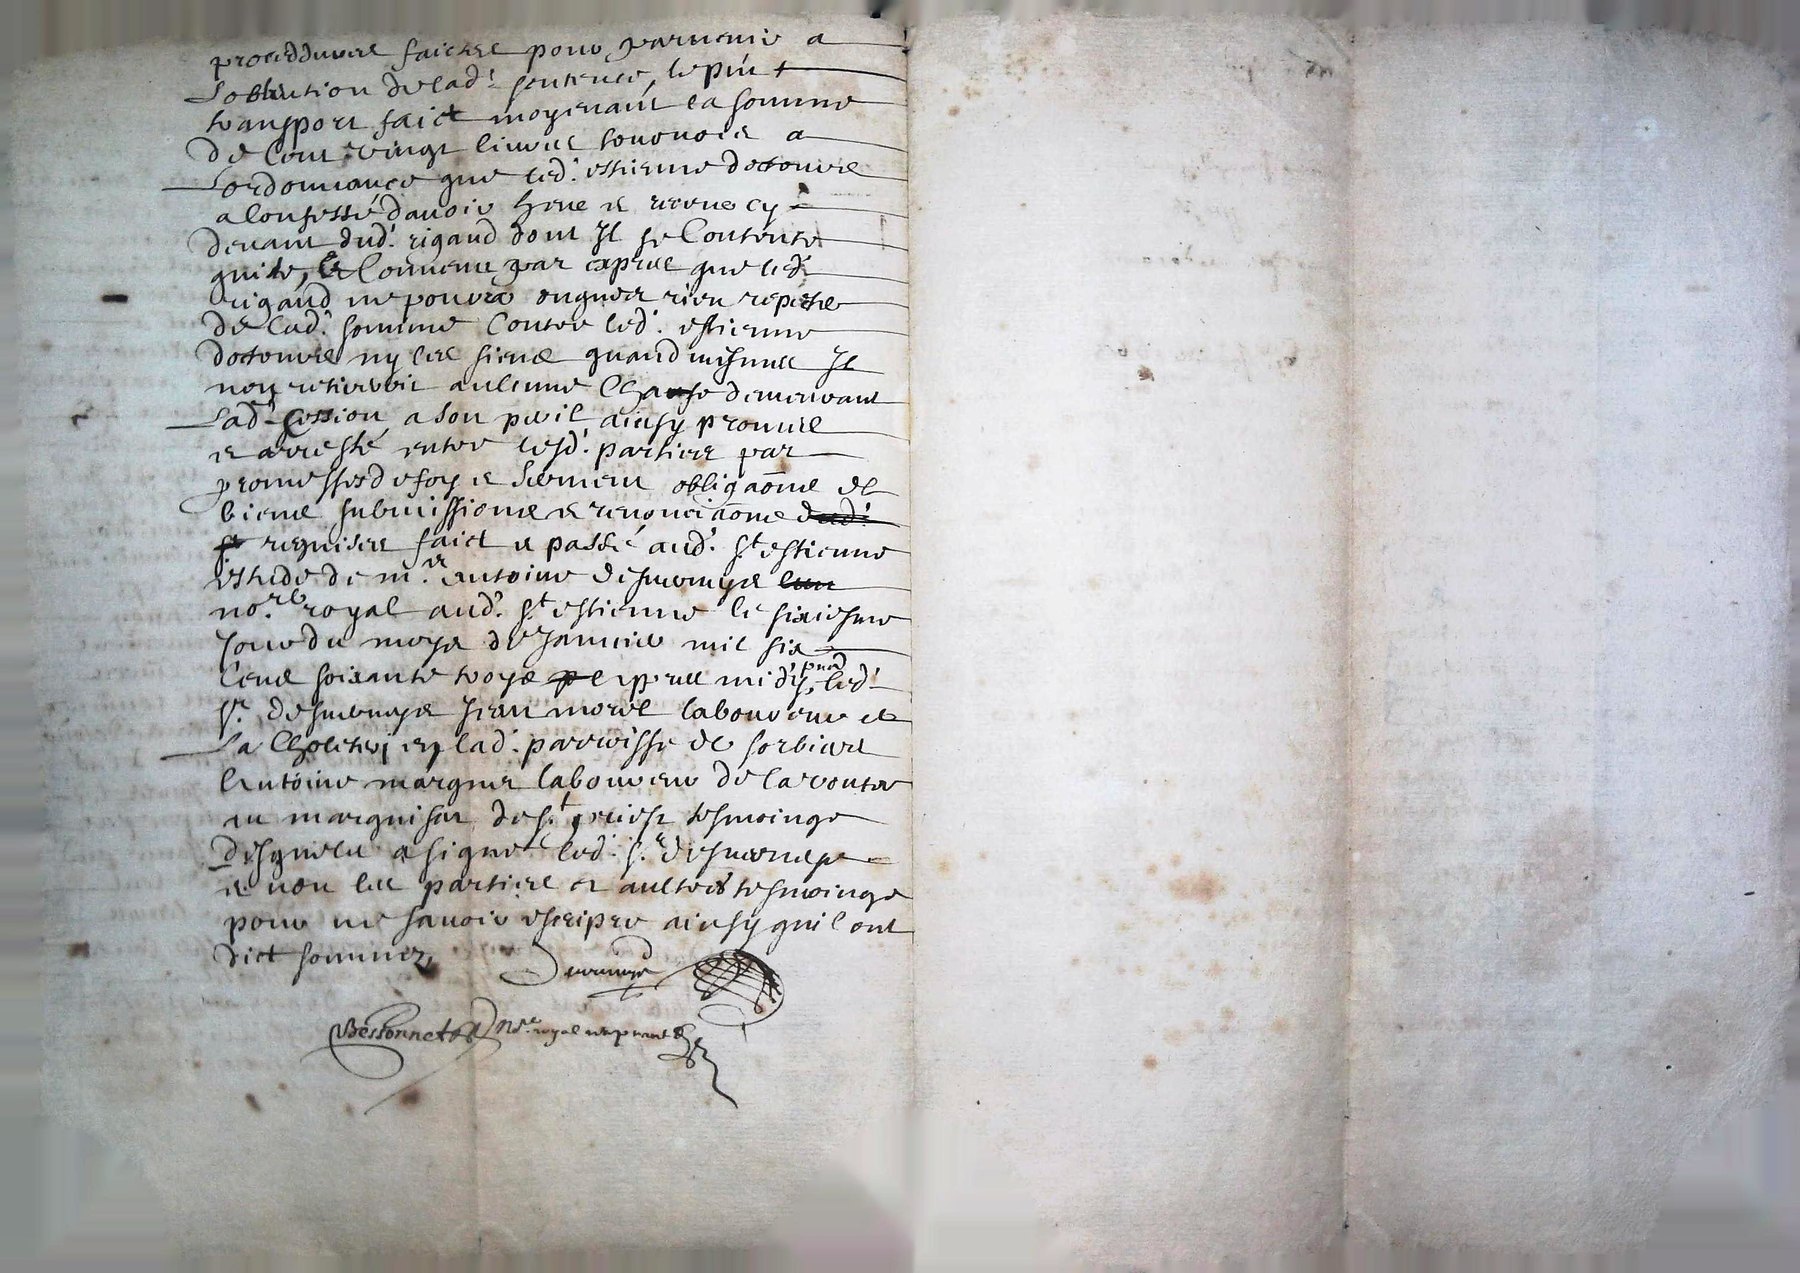 proceddures faictes pour parvenir a
Lobtention de lad.t sentence, le pñt
transport faict moyenant la somme
de Cent vingt livres tournois a
Lordonnance que led. estienne
a Confessé davoir heue et receue cy
devant dud.t rigaud dont Il se Contente
quite, et Convenu par exprees que led.t
rigaud ne pourra rien repeter
de Lad.t somme Contre led.t estienne
ny les siens quand mesmes Il
non retireroit aulcune Chause demeurant
Lad.t Cession a son peril ainsy promis
et arresté entre lesd.t parties par
promesses de foy et serment obligaõns de
biens submissions et renonciaõns dud.t
requises faict et passé aud.t S.t estienne
estude de m.re antoine desverneys
no.re royal aud.t S.t estienne le sixiesme
Jour du moys de Janvier mil six
Cens soixante troys appres midy, pñd led.t
S.r desverneys Jean morel laboureur de
La en lad.t parroisse de sorbiers
Antoine margues laboureur de la
au marquisat de S.t priest tesmoings
Desquels a signé led.t S.r desverneys
et non les parties et aultres tesmoings
pour ne savoir escripre ainsy quil ont
dict sommez,
Bessonnet no.re royal